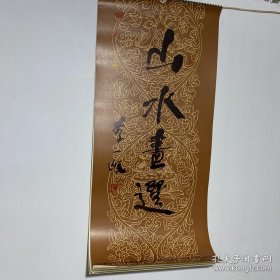 山水畫選
孔夫子旧书网